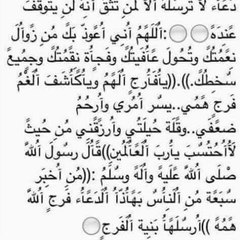 دعاء لا ترسله الا لمن تثق انه لن يتوقف
عنده :اللهم اني أعوذ بك من زوال
نعمتك وتحول عافيتك وفجأة نقمتك وجميع
سخطك.)).((يافارج الهم وياكاشف الغم
فرج همي..يسر أمري وأرحم
ضعفي..وقلة حيلتي وأرزقني من حيث
لاأحتسب يارب العالمين))قال رسول الله
صلى الله عليه وآله وسلم :((من أخبر
سبعة من الناس بهاذا الدعاء فرج الله
همه ))أرسلها بنية الفرج